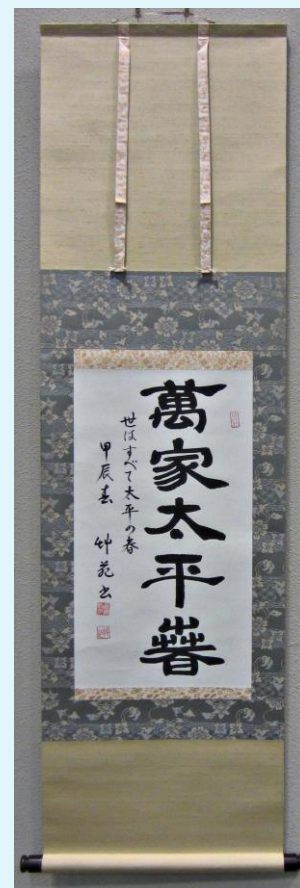 萬家太平春
世はすべて太平の春
甲辰春 竹苑書